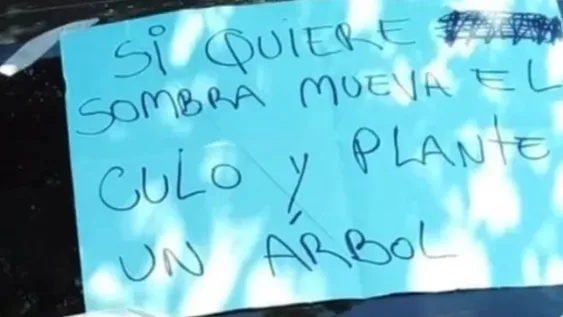 SI QUIERE
SOMBRA MUEVA EL
CULO Y PLANTE
UN ÁRBOL